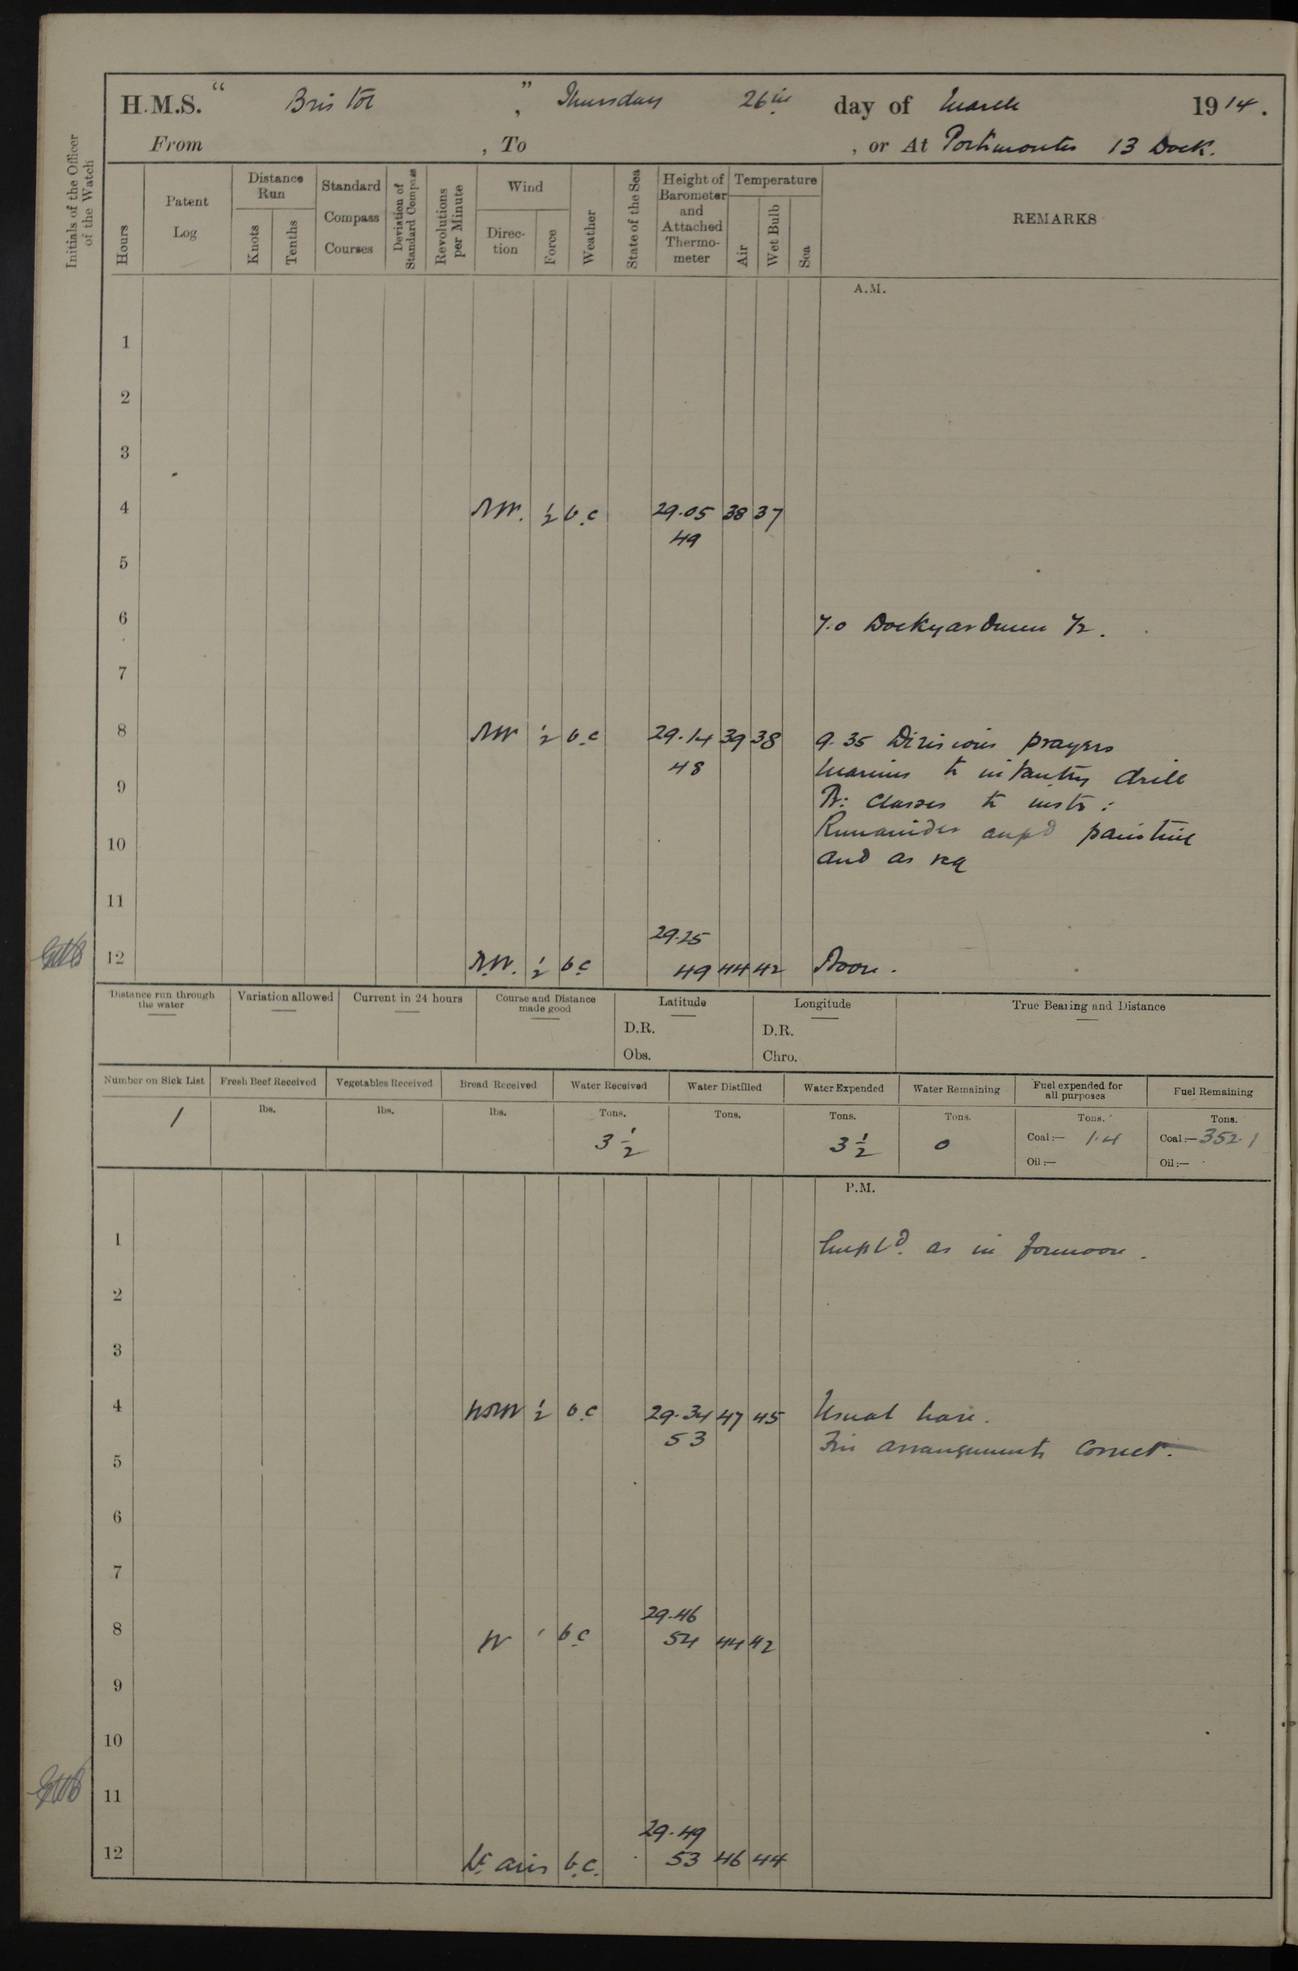 H.M.S. " Bristol ", Thursday 26th day of March 1914.
From , To , or At Portsmouth 13 Dock.
Initials of the Officer of the Watch
Hours
Patent Log
Distance Run
Knots
Tenths
Standard Compass Courses
Deviation of Standard Compass
Revolutions per Minute
Wind
Direction
Force
Weather
State of the Sea
Height of Barometer and Attached Thermometer
Temperature
Air
Wet Bulb
Sea
REMARKS
A.M.
1
2
3
4 NW. 1/2 b.c 29.05 38 37
49
5
6 7.0 Dockyardmen 1/2.
7
8 NW 1/2 b.c 29.14 39 38 9.35 Divisions prayers
48 Marines to infantry drill
9 classes to instr:
10 Remainder painting
and as req
11
29.25
12 N.W. 1/2 b.c 49 44 42 Noon.
Distance run through the water
Variation allowed
Current in 24 hours
Course and Distance made good
Latitude
D.R.
Obs.
Longitude
D.R.
Chro.
True Bearing and Distance
Number on Sick List
1
Fresh Beef Received
lbs.
Vegetables Received
lbs.
Bread Received
lbs.
Water Received
Tons.
3 1/2
Water Distilled
Tons.
Water Expended
Tons.
3 1/2
Water Remaining
Tons.
0
Fuel expended for all purposes
Tons.
Coal:— 1.4
Oil:—
Fuel Remaining
Tons.
Coal:— 352.1
Oil:—
P.M.
1 Empld. as in forenoon.
2
3
4 WNW 1/2 b.c 29.34 47 45 Usual leave.
53 Fire arrangements correct.
5
6
7
29.46
8 W 1 b.c 54 44 42
9
10
11
29.49
12 Lt airs b.c. 53 46 44